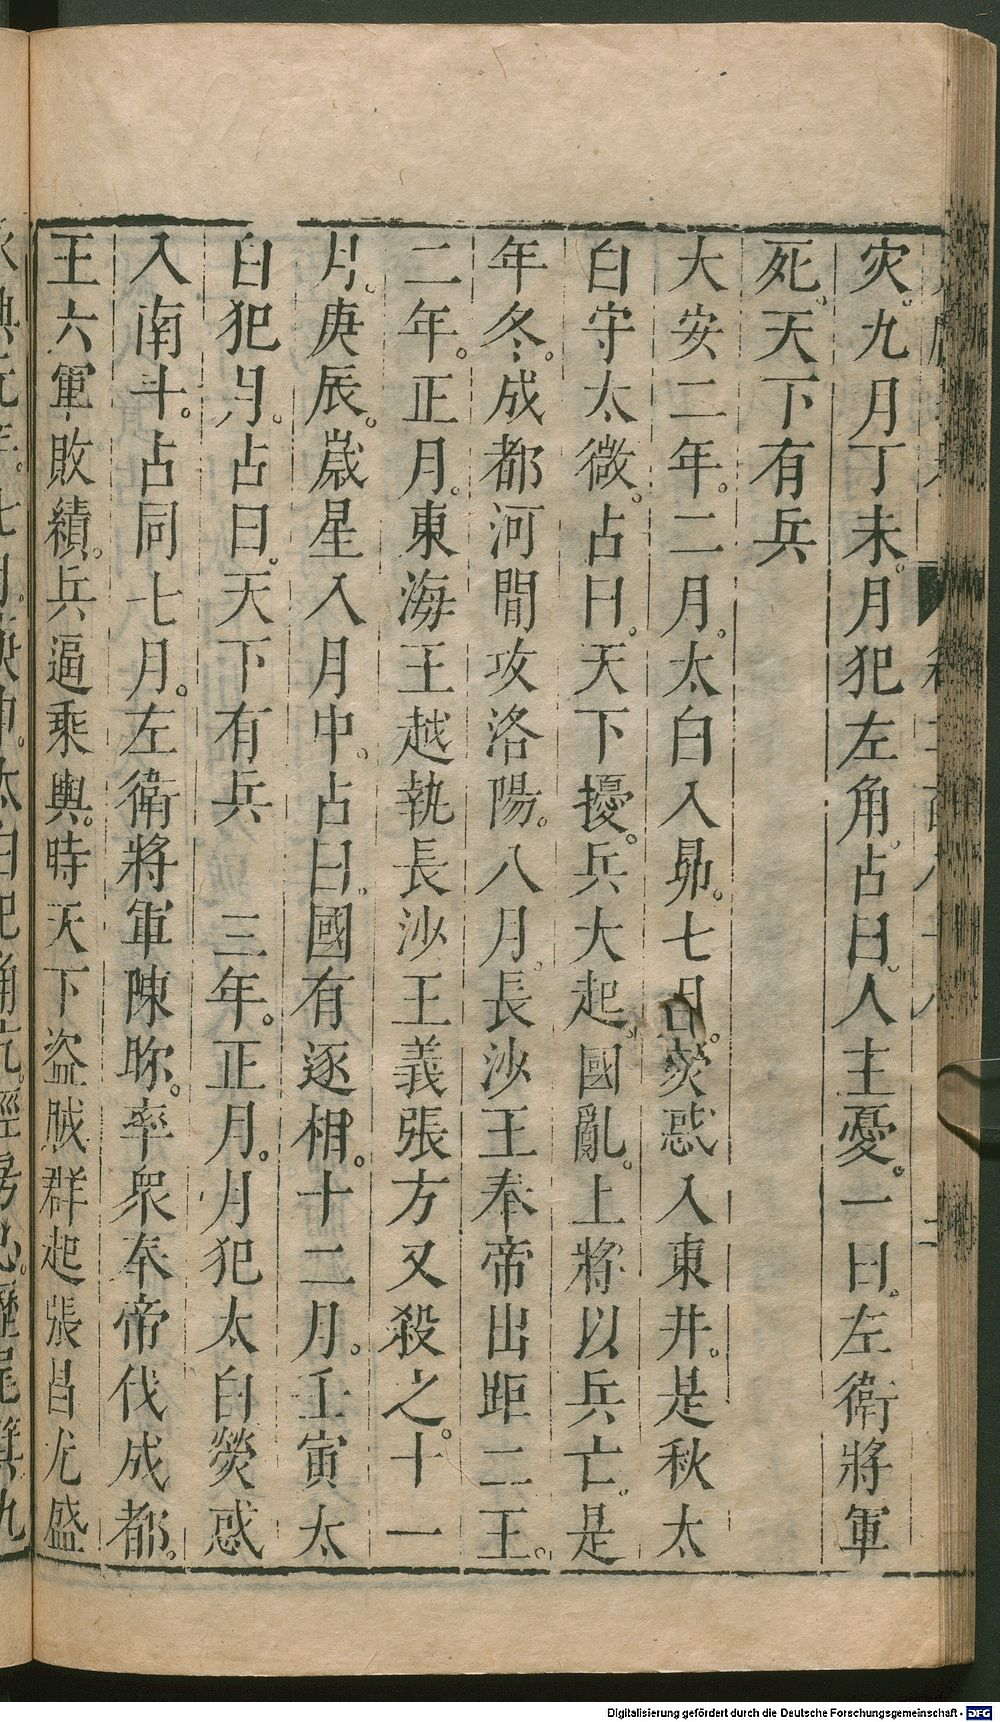 灾。九月丁未。月犯左角。占曰。人主憂。一曰。左衛將軍
死。天下有兵
大安二年。二月。太白入昴。七月。熒惑入東井。是秋太
白守太微。占曰。天下擾。兵大起。國亂。上將以兵亡。是
年冬。成都河間攻洛陽。八月。長沙王奉帝出距二王。
二年。正月。東海王越執長沙王義張方又殺之。十一
月。庚辰。嵗星入月中。占曰。國有逐相。十二月。壬寅太
白犯月。占曰。天下有兵 三年。正月。月犯太白熒惑
入南斗。占同七月。左衛將軍陳眕。率衆奉帝伐成都。
王六軍敗績。兵逼乘輿。時天下盜賊群起張昌尤盛
Digitalisierung gefördert durch die Deutsche Forschungsgemeinschaft - DFG